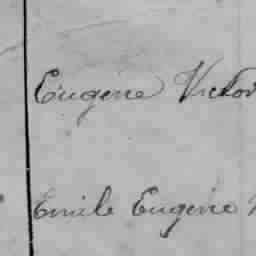 Eugène Victor
Emile Eugène